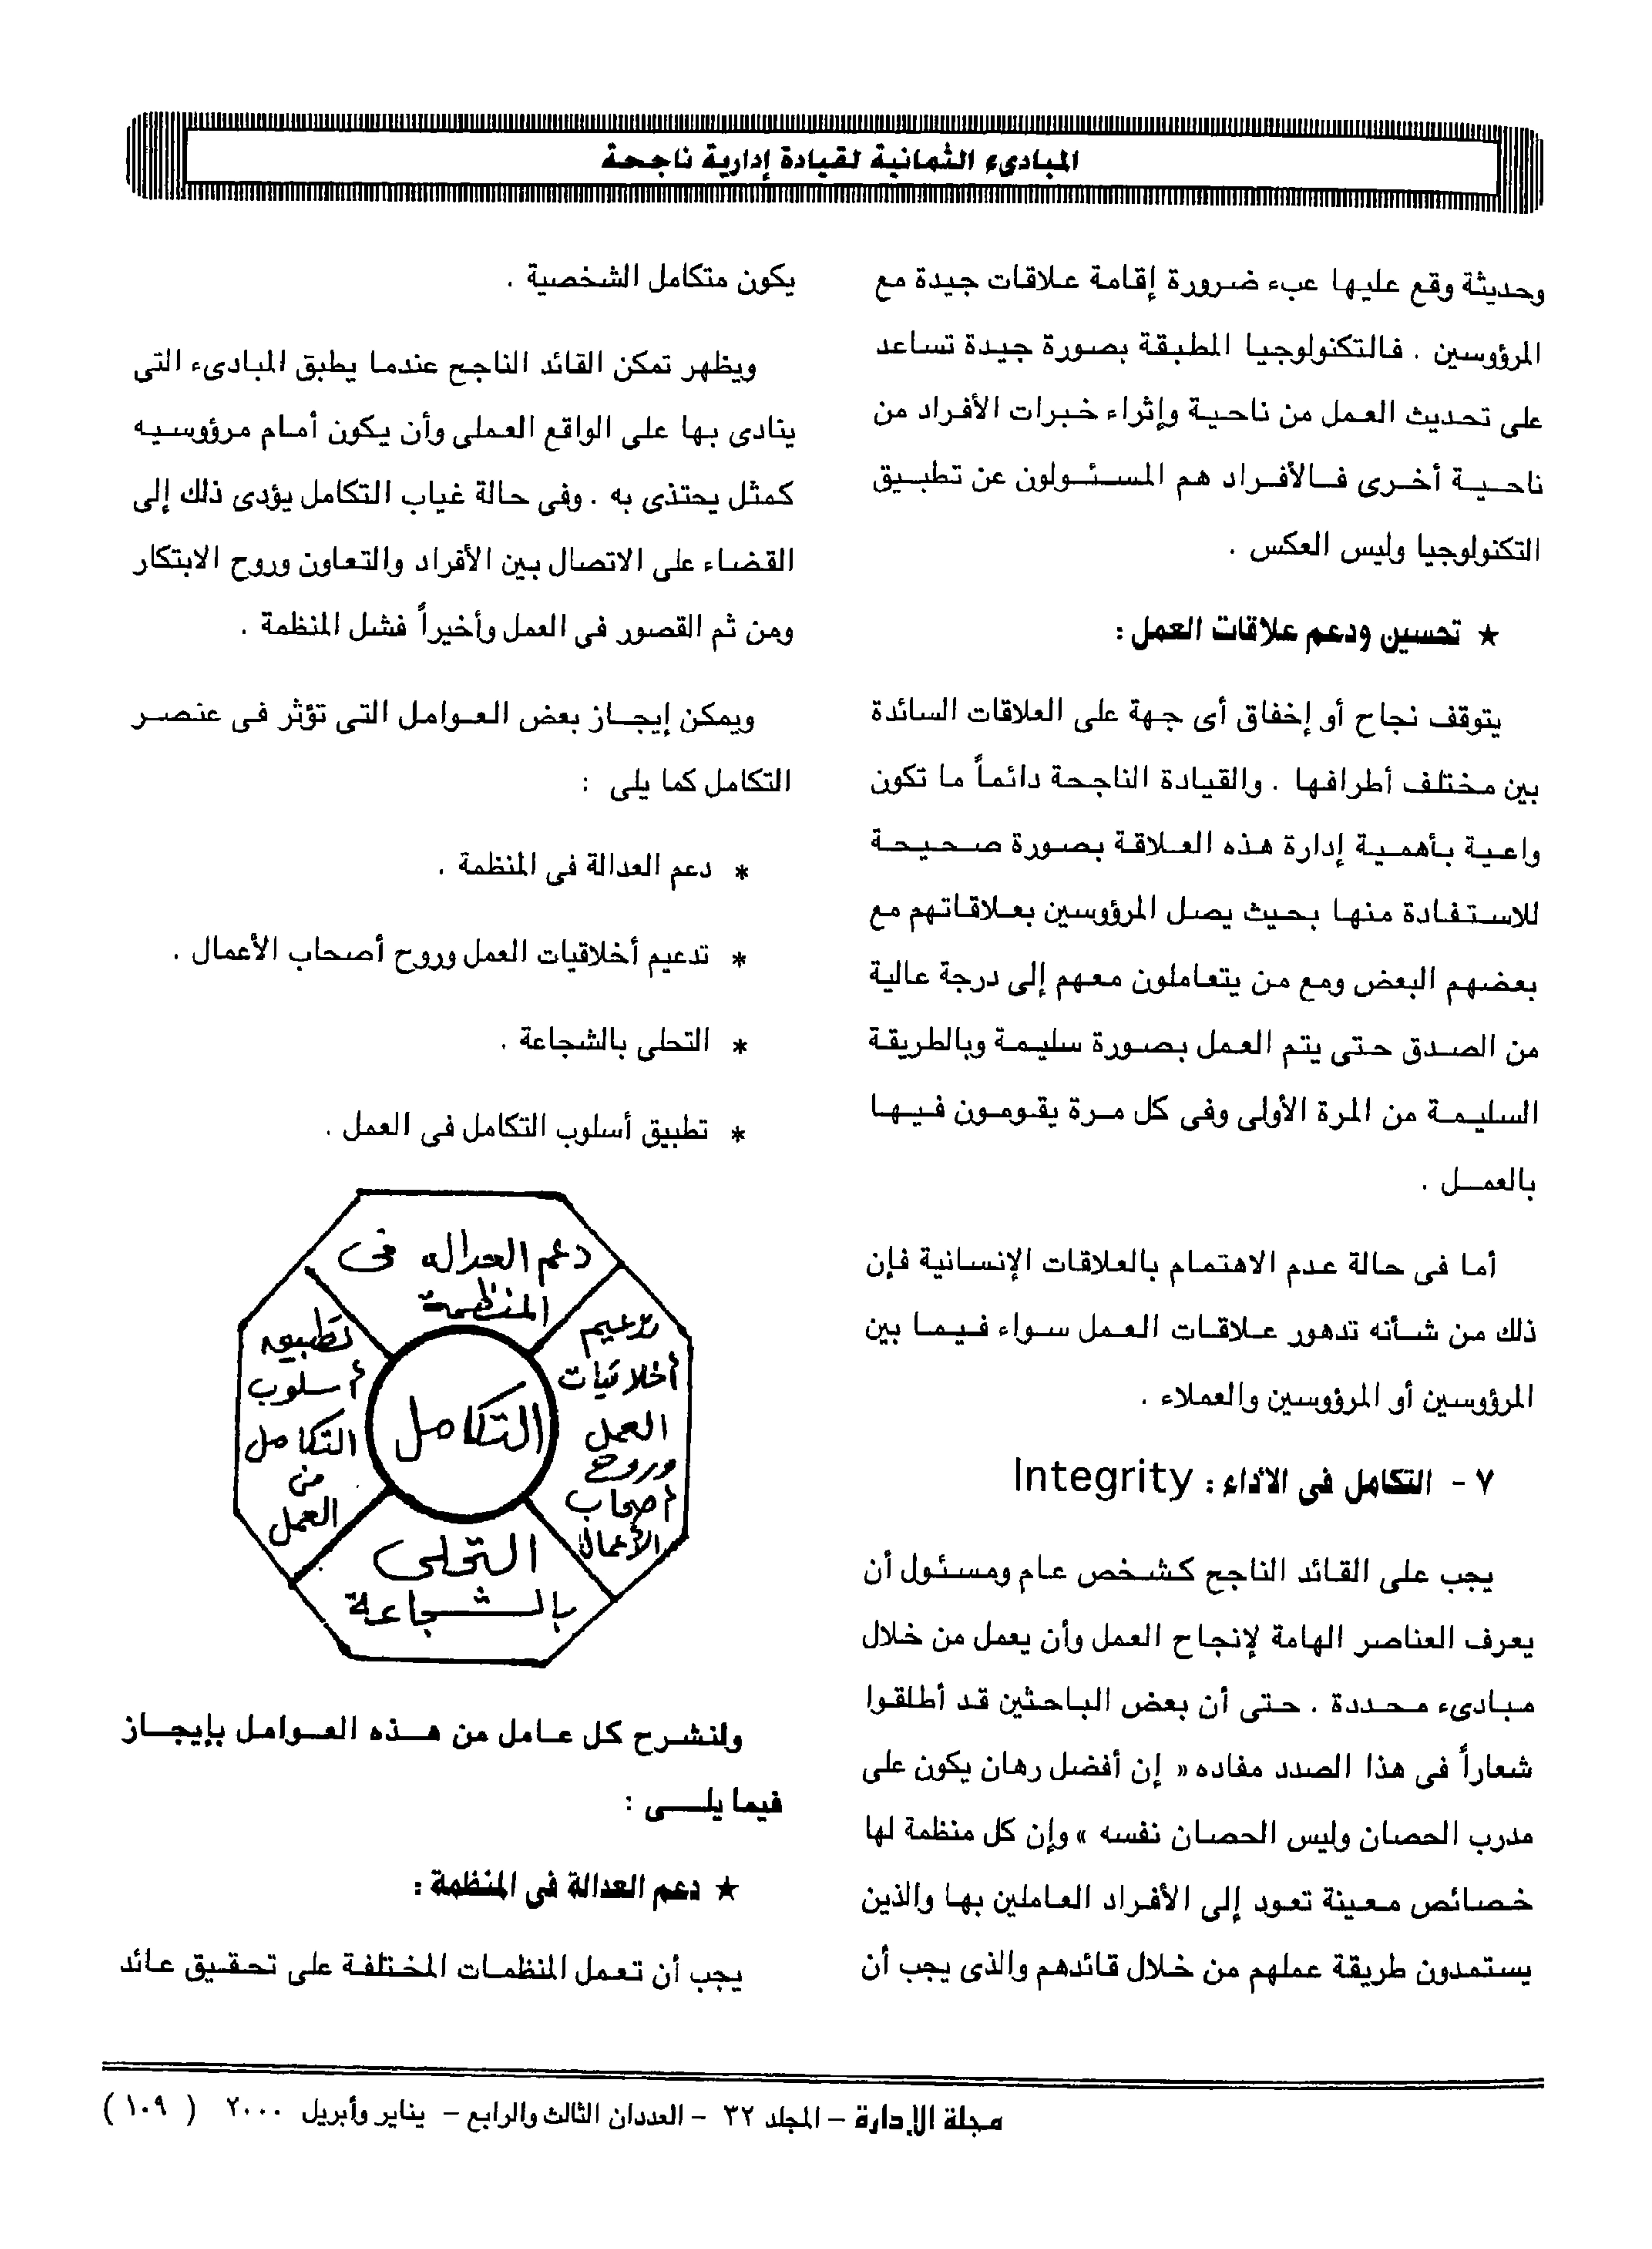 المبادىء الثمانية لقيادة إدارية ناجحة
وحديثة وقع عليها عبء ضرورة إقامة علاقات جيدة مع
المرؤوسين . فالتكنولوجيا المطبقة بصورة جيدة تساعد
على تحديث العمل من ناحية وإثراء خبرات الأفراد من
ناحية أخرى فالأفراد هم المسئولون عن تطبيق
التكنولوجيا وليس العكس .
★ تحسين ودعم علاقات العمل :
يتوقف نجاح أو إخفاق أى جهة على العلاقات السائدة
بين مختلف أطرافها . والقيادة الناجحة دائماً ما تكون
واعية بأهمية إدارة هذه العلاقة بصورة صحيحة
للاستفادة منها بحيث يصل المرؤوسين بعلاقاتهم مع
بعضهم البعض ومع من يتعاملون معهم إلى درجة عالية
من الصدق حتى يتم العمل بصورة سليمة وبالطريقة
السليمة من المرة الأولى وفى كل مرة يقومون فيها
بالعمل .
أما فى حالة عدم الاهتمام بالعلاقات الإنسانية فإن
ذلك من شأنه تدهور علاقات العمل سواء فيما بين
المرؤوسين أو المرؤوسين والعملاء .
٧ - التكامل فى الأداء : Integrity
يجب على القائد الناجح كشخص عام ومسئول أن
يعرف العناصر الهامة لإنجاح العمل وأن يعمل من خلال
مبادىء محددة . حتى أن بعض الباحثين قد أطلقوا
شعاراً فى هذا الصدد مفاده « إن أفضل رهان يكون على
مدرب الحصان وليس الحصان نفسه » وإن كل منظمة لها
خصائص معينة تعود إلى الأفراد العاملين بها والذين
يستمدون طريقة عملهم من خلال قائدهم والذى يجب أن
يكون متكامل الشخصية .
ويظهر تمكن القائد الناجح عندما يطبق المبادىء التى
ينادى بها على الواقع العملى وأن يكون أمام مرؤوسيه
كمثل يحتذى به . وفى حالة غياب التكامل يؤدى ذلك إلى
القضاء على الاتصال بين الأفراد والتعاون وروح الابتكار
ومن ثم القصور فى العمل وأخيراً فشل المنظمة .
ويمكن إيجاز بعض العوامل التى تؤثر فى عنصر
التكامل كما يلى :
* دعم العدالة فى المنظمة .
* تدعيم أخلاقيات العمل وروح أصحاب الأعمال .
* التحلى بالشجاعة .
* تطبيق أسلوب التكامل فى العمل .
دعم العداله فى
المنظمة
تدعيم
أخلاقيات
العمل
وروح
أصحاب
الأعمال
التحلى
بالشجاعة
تطبيق
أسلوب
التكامل
من
العمل
التكامل
ولنشرح كل عامل من هذه العوامل بإيجاز
فيما يلى :
★ دعم العدالة فى المنظمة :
يجب أن تعمل المنظمات المختلفة على تحقيق عائد
مجلة الإدارة – المجلد ٣٢ – العددان الثالث والرابع – يناير وأبريل ٢٠٠٠ ( ١٠٩ )